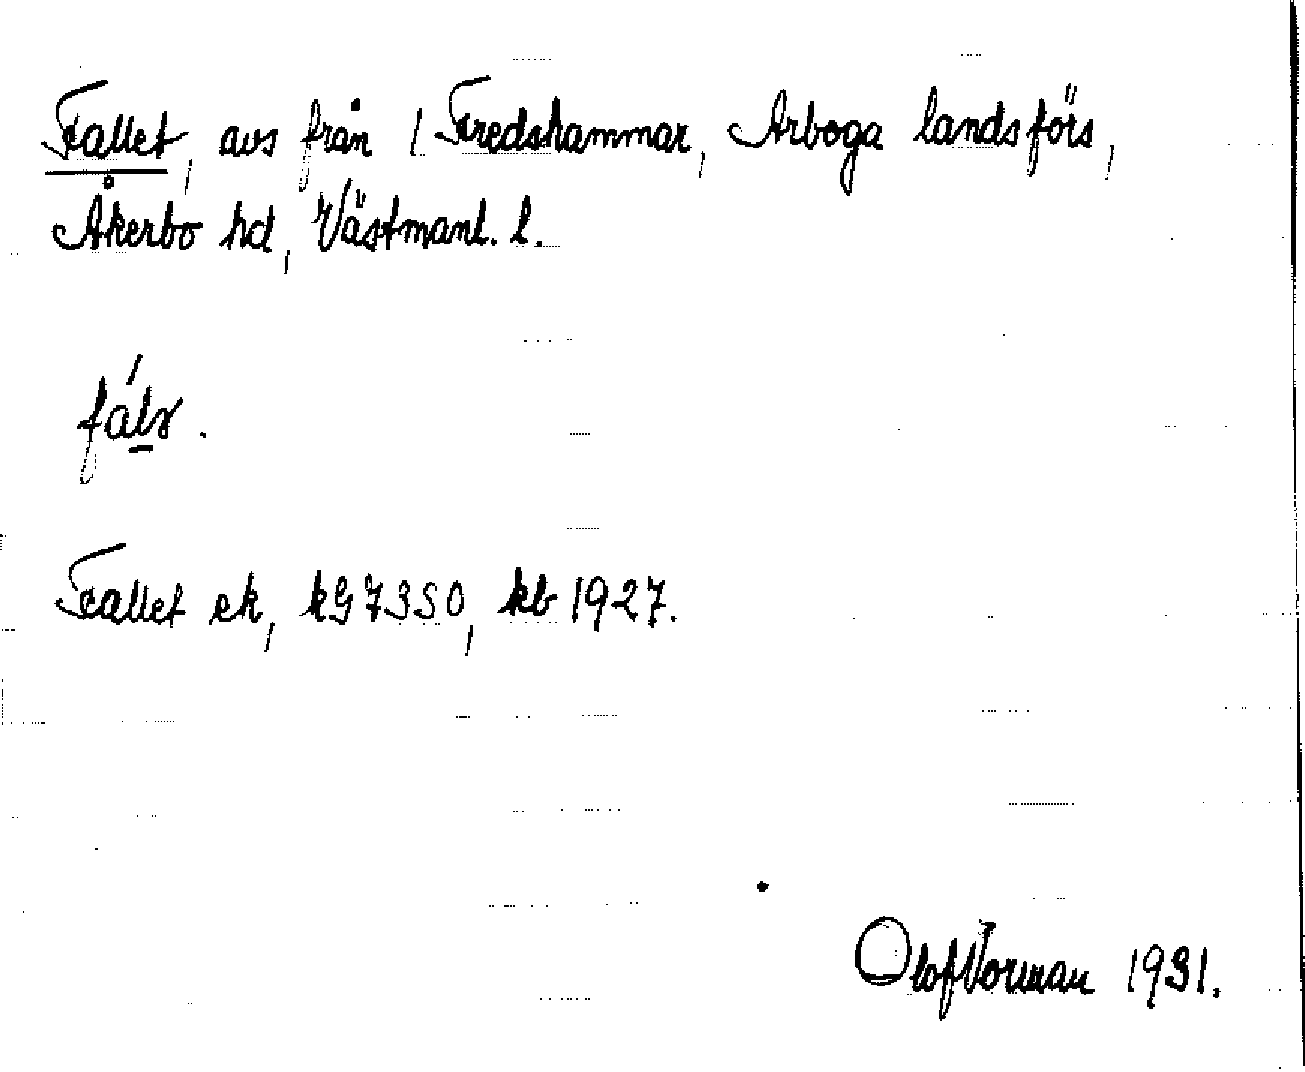 Fallet, avs från 1 Fredshammar, Arboga landsförs,
Åkerbo hd, Västmanl. l.
Fallet ek, kG7350, kb 1927.
Olof Norman 1931.